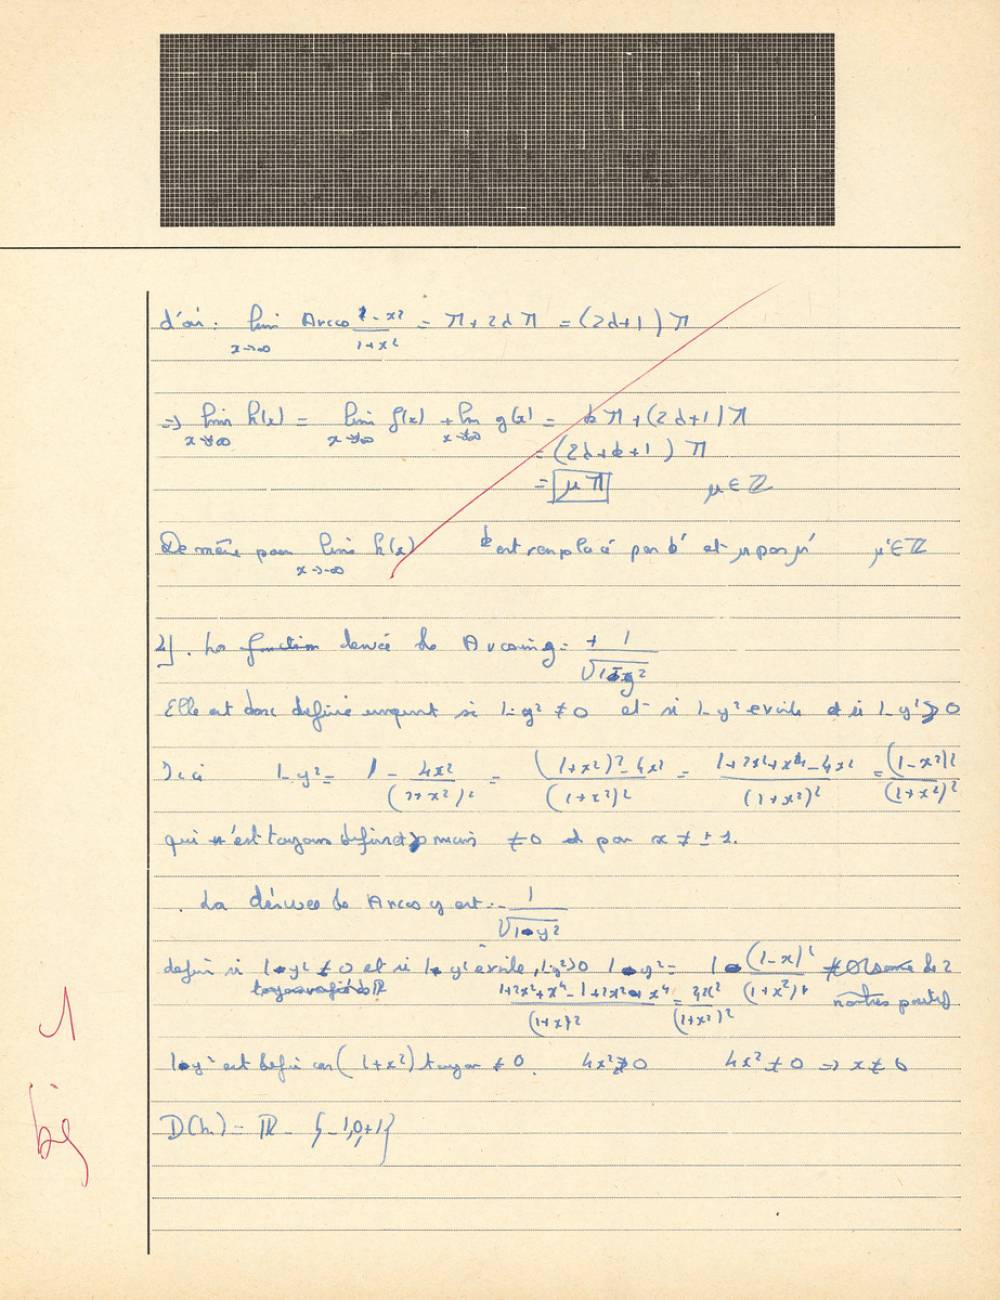 d'où : lim Arccos (1-x²)/(1+x²) = π + 2λπ = (2λ+1)π
x→∞
⇒ lim h(x) = lim f(x) + lim g(x) = kπ + (2λ+1)π
x→+∞ x→+∞ x→+∞
= (2λ+k+1)π
= μπ μ∈ℤ
De même pour lim h(x) k est remplacé par k' et μ par μ' μ'∈ℤ
x→-∞
2). La fonction derivée de Arcsin y = + 1/√(1-y²)
Elle est donc définie uniquement si 1-y² ≠ 0 et si 1-y² existe et si 1-y² ≥ 0
Ici 1-y² = 1 - 4x²/(1+x²)² = ((1+x²)²-4x²)/(1+x²)² = (1+2x²+x⁴-4x²)/(1+x²)² = (1-x²)²/(1+x²)²
qui est toujours définie et ≥ mais ≠ 0 pour x ≠ ±1.
. La dérivée de Arccos y est : - 1/√(1-y²)
défini si 1-y² ≠ 0 et si 1-y² existe, 1-y² > 0 1-y² = 1 - (1-x)²/(1+x²)² de 2
(1+2x²+x⁴-1+2x²-x⁴)/(1+x²)² = 4x²/(1+x²)² nombres positifs
1-y² est défini car (1+x²) toujours ≠ 0. 4x² ≥ 0 4x² ≠ 0 ⇒ x ≠ 0
D(h) = ℝ - {-1,0,+1}
1